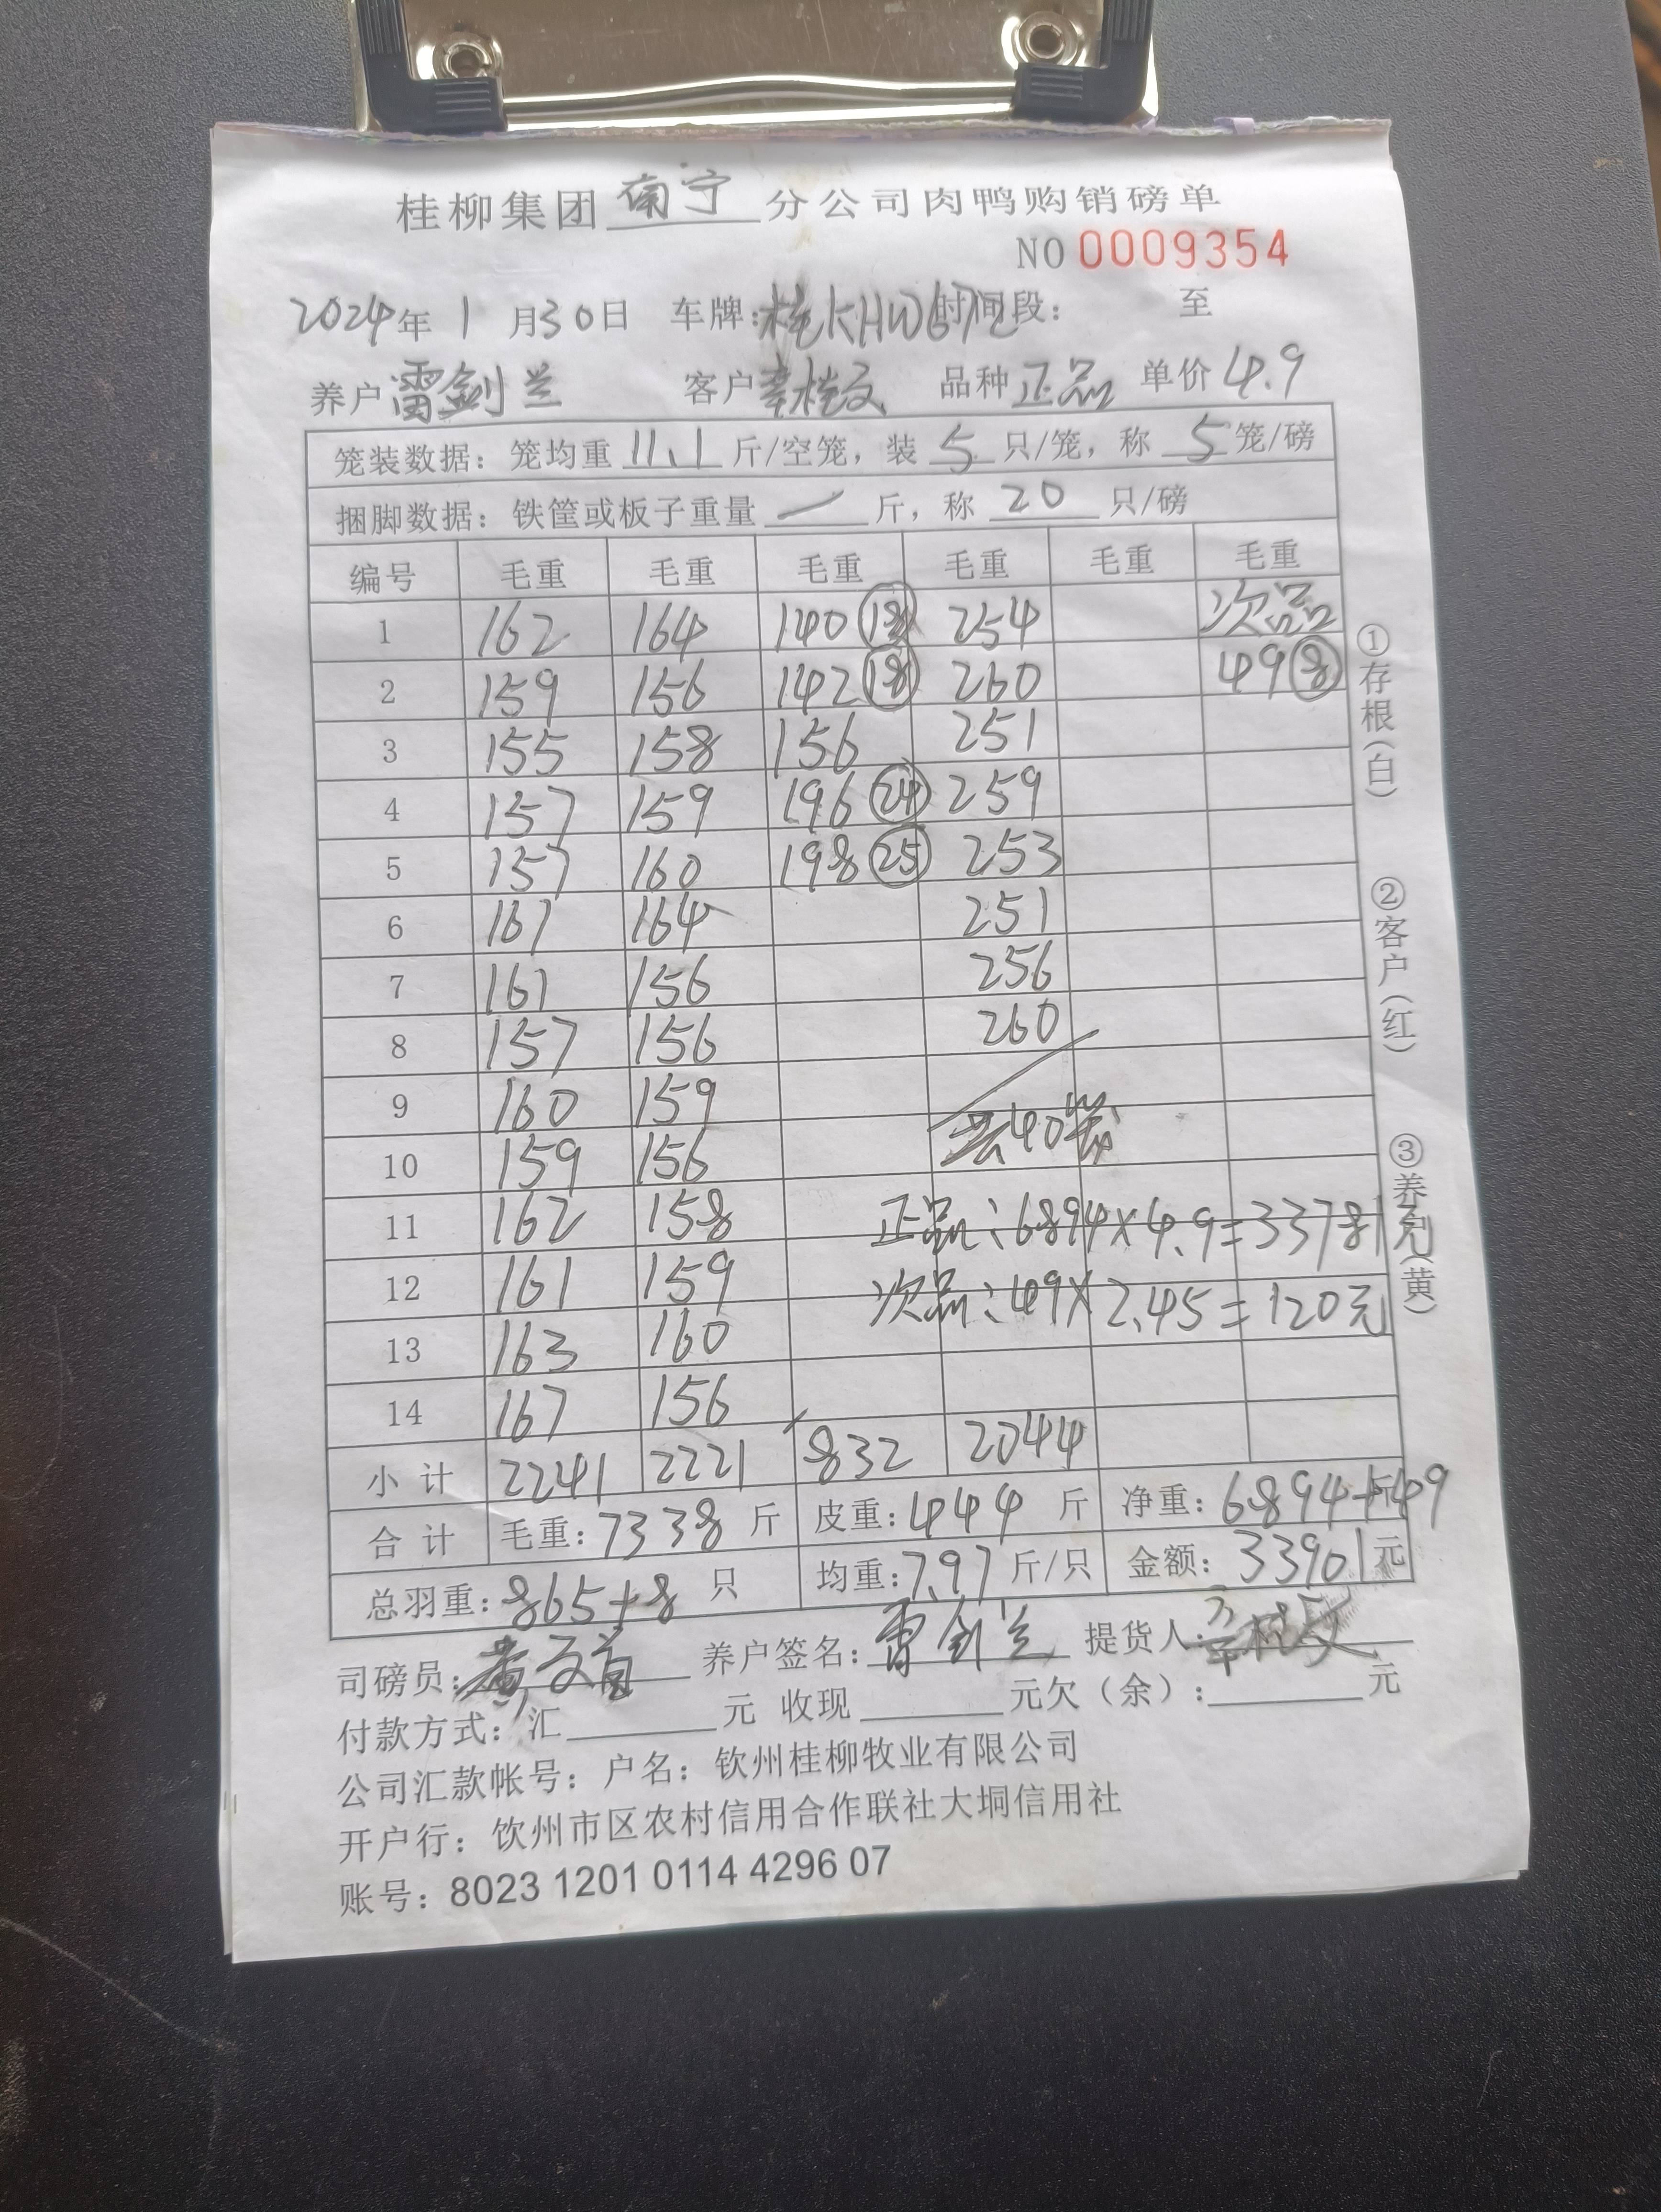 桂柳集团南宁分公司肉鸭购销磅单
NO 0009354
2024年1月30日 车牌:桂KHW671 时间段: 至
养户 雷剑兰 客户 桂文 品种 正品 单价 4.9
笼装数据: 笼均重 11.1 斤/空笼, 装 5 只/笼, 称 5 笼/磅
捆脚数据: 铁筐或板子重量 — 斤, 称 20 只/磅
编号 毛重 毛重 毛重 毛重 毛重 毛重
1 162 164 140 ⑱ 254 次品
2 159 156 142 ⑱ 260 49 ⑧
3 155 158 156 251
4 157 159 196 ㉔ 259
5 157 160 198 ㉕ 253
6 161 164 251
7 161 156 256
8 157 156 260
9 160 159
10 159 156 共40笼
11 162 158 正品:6894×4.9=33781元
12 161 159 次品:49×2.45=120元
13 163 160
14 167 156
小计 2241 2221 832 2044
合计 毛重:7338斤 皮重:444斤 净重:6894+49斤
总羽重:865+8只 均重:7.97斤/只 金额:33901元
司磅员: 养户签名:雷剑兰 提货人:
付款方式: 汇 元 收现 元欠(余): 元
公司汇款帐号: 户名: 钦州桂柳牧业有限公司
开户行: 钦州市区农村信用合作联社大垌信用社
账号: 8023 1201 0114 4296 07
①存根(白) ②客户(红) ③养户(黄)